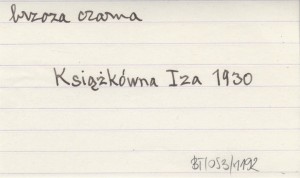 brzoza czarna
Książkówna Iza 1930
BT/053/1192